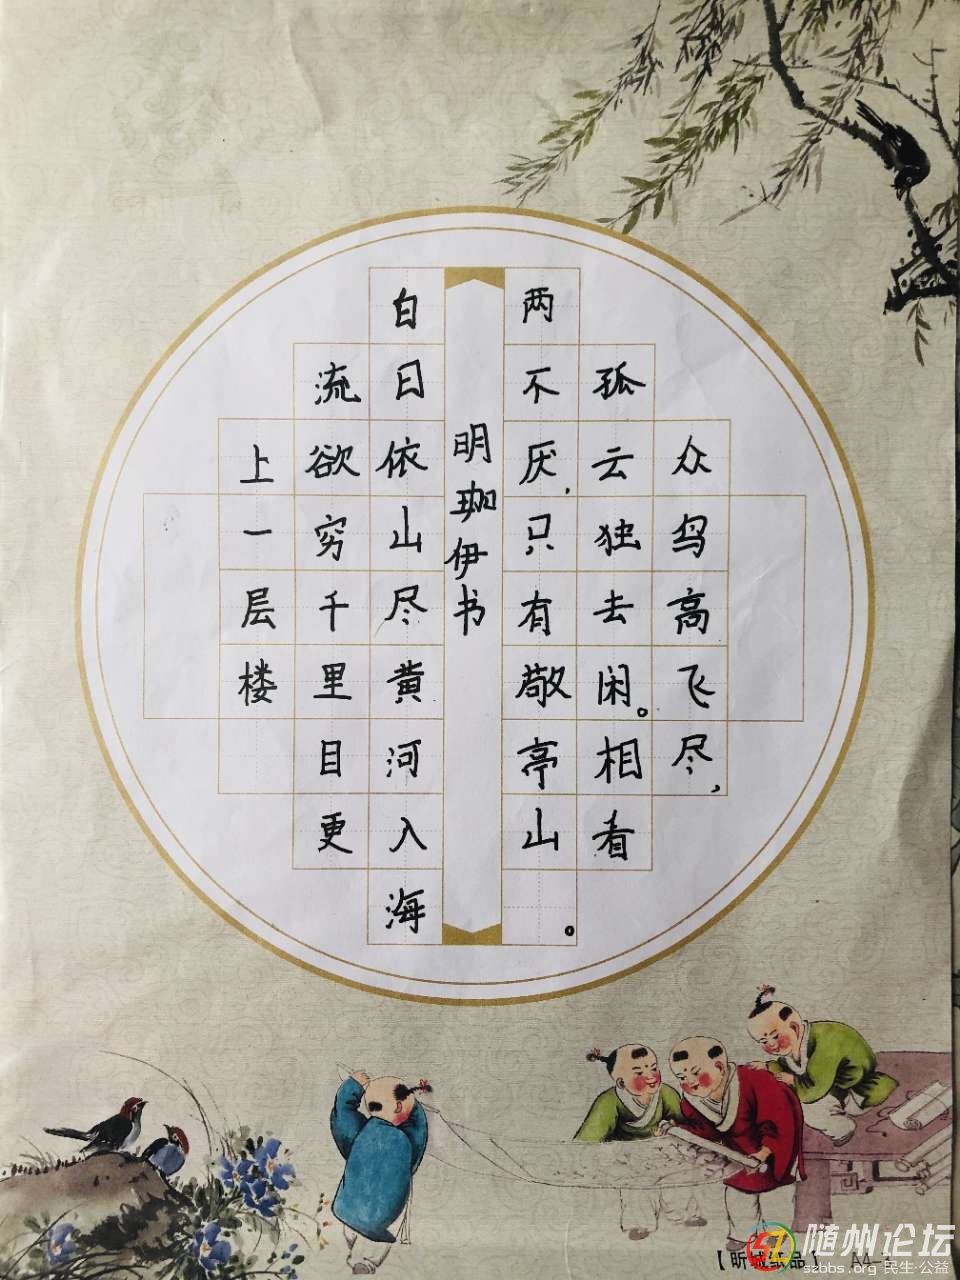 众鸟高飞尽，
孤云独去闲。相看
两不厌，只有敬亭山。
明珈伊书
白日依山尽黄河入海
流欲穷千里目更
上一层楼
【昕城纸品】 A4-
随州论坛
szbbs.org 民生·公益